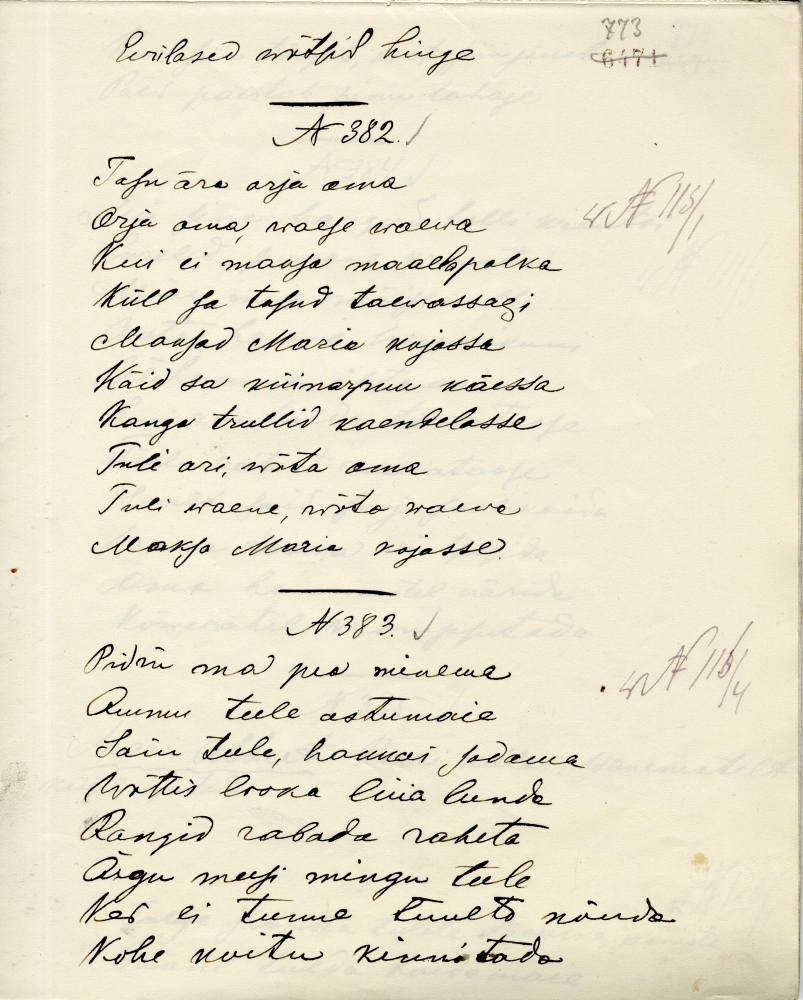 773
6471
Eesilased wõtsid hinge
№ 382.
Tasu ära orja oma
Orja oma, waese waewa
Kui ei maksa maal palka
Küll sa tasud taewassagi
Maksad Maria kojassa
Käid sa küinarpuu käessa
Kanga trullid kaendelasse
Tuli ori, wõta oma
Tuli waene, wõta waewa
Maksa Maria kojasse.
№ 383.
Pidin ma pea minema
Ammu teele astumaie
Sain teele, hakkas sadama
Wõttis looka lund
Rangid rabada raheta
Ärgu meesi mingu teele
Kes ei tunne tuulta nõuda
Kohe noitu kinnitada
w № 115/1
w № 115/4